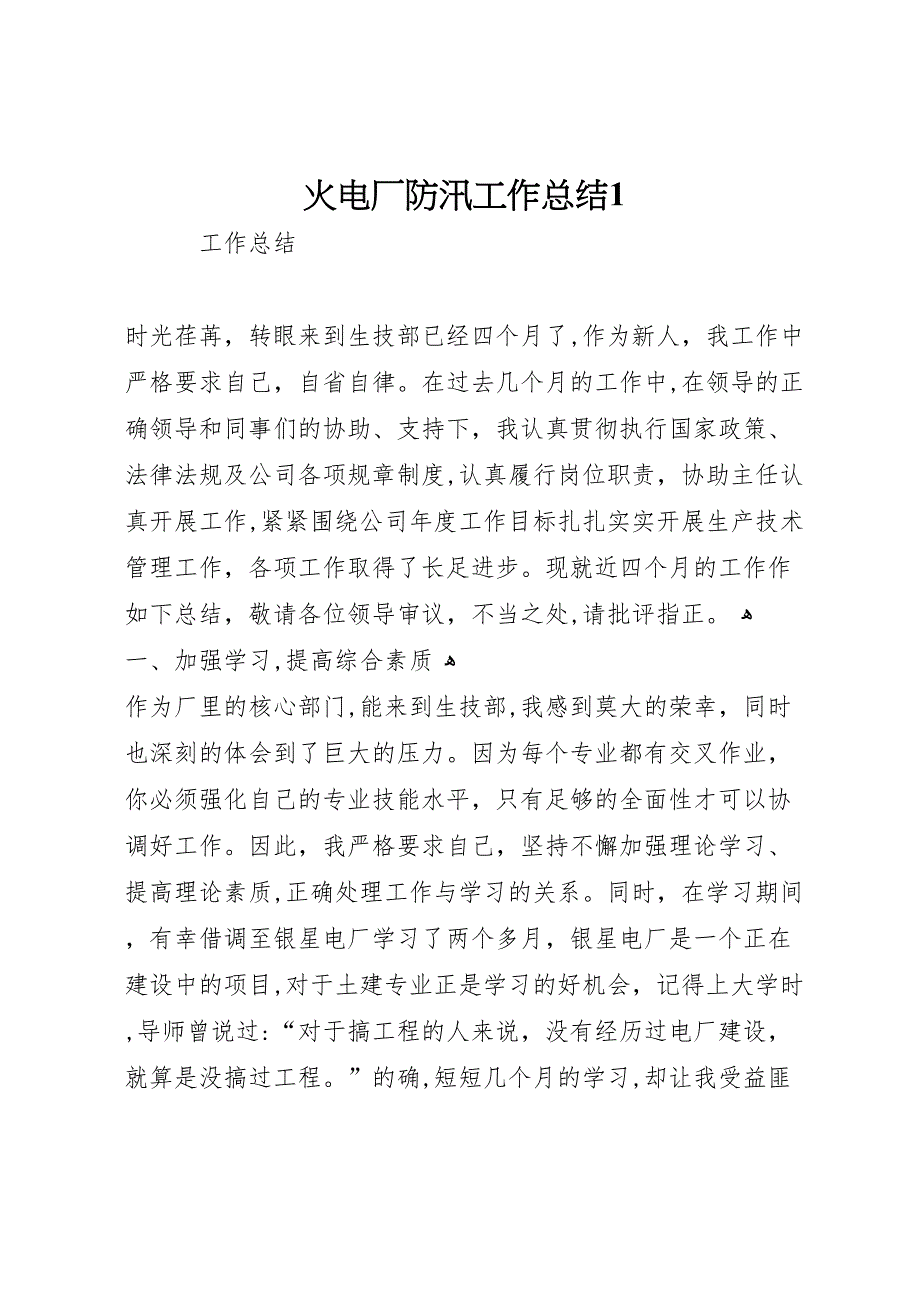 火电厂防汛工作总结1
工作总结
时光荏苒，转眼来到生技部已经四个月了,作为新人，我工作中
严格要求自己，自省自律。在过去几个月的工作中,在领导的正
确领导和同事们的协助、支持下，我认真贯彻执行国家政策、
法律法规及公司各项规章制度,认真履行岗位职责，协助主任认
真开展工作,紧紧围绕公司年度工作目标扎扎实实开展生产技术
管理工作，各项工作取得了长足进步。现就近四个月的工作作
如下总结，敬请各位领导审议，不当之处,请批评指正。ﻫ
一、加强学习,提高综合素质ﻫ
作为厂里的核心部门,能来到生技部,我感到莫大的荣幸，同时
也深刻的体会到了巨大的压力。因为每个专业都有交叉作业，
你必须强化自己的专业技能水平，只有足够的全面性才可以协
调好工作。因此，我严格要求自己，坚持不懈加强理论学习、
提高理论素质,正确处理工作与学习的关系。同时，在学习期间
，有幸借调至银星电厂学习了两个多月，银星电厂是一个正在
建设中的项目,对于土建专业正是学习的好机会，记得上大学时
,导师曾说过:“对于搞工程的人来说，没有经历过电厂建设，
就算是没搞过工程。”的确,短短几个月的学习,却让我受益匪